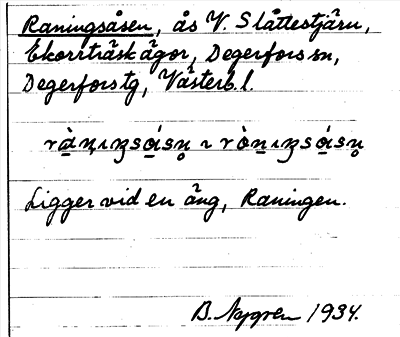 Raningsåsen, ås V. Slåttestjärn,
Ekorrträsk ägor, Degerfors sn,
Degerfors tg, Västerb. l.
Ligger vid en äng, Raningen.
B. Nygren 1934.